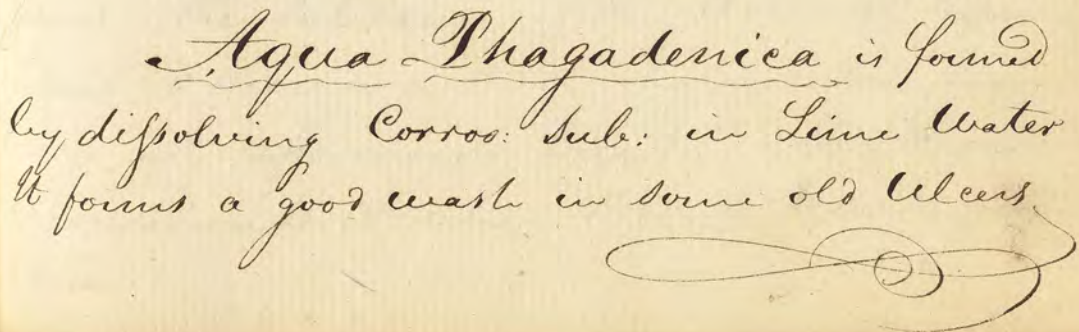 Aqua Phagadenica is formed
by diſsolving Corros: Sub: in Lime Water
It forms a good wash in some old Ulcers.